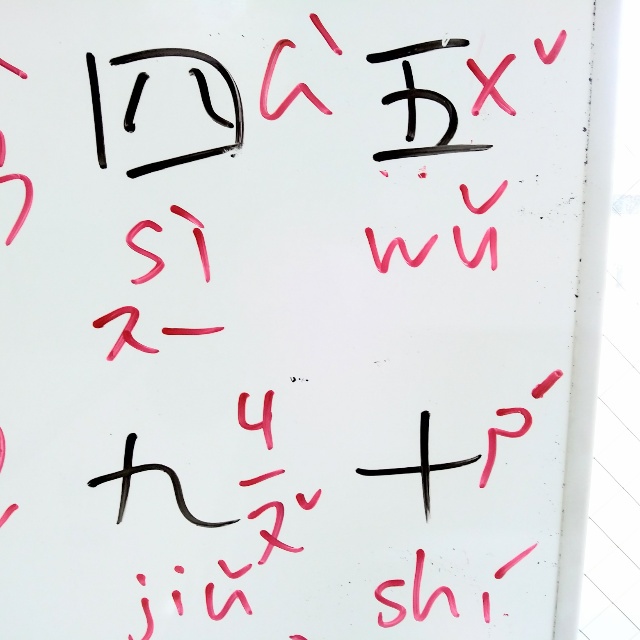 四 ㄙˋ 五 ㄨˇ
sì wǔ
スー
九 ㄐㄧㄡˇ 十 ㄕˊ
jiǔ shí